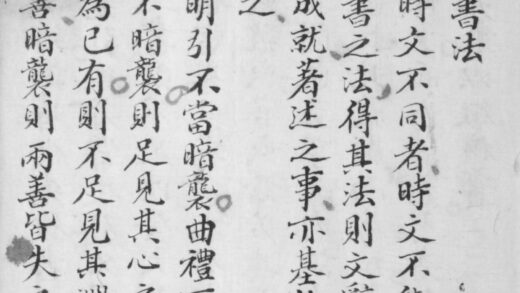 書法
時文不同者時文不
書之法得其法則文辭
成就著述之事亦基
之
明引不當暗襲曲禮
不暗襲則足見其心之
為已有則不足見其
善暗襲則兩善皆失之